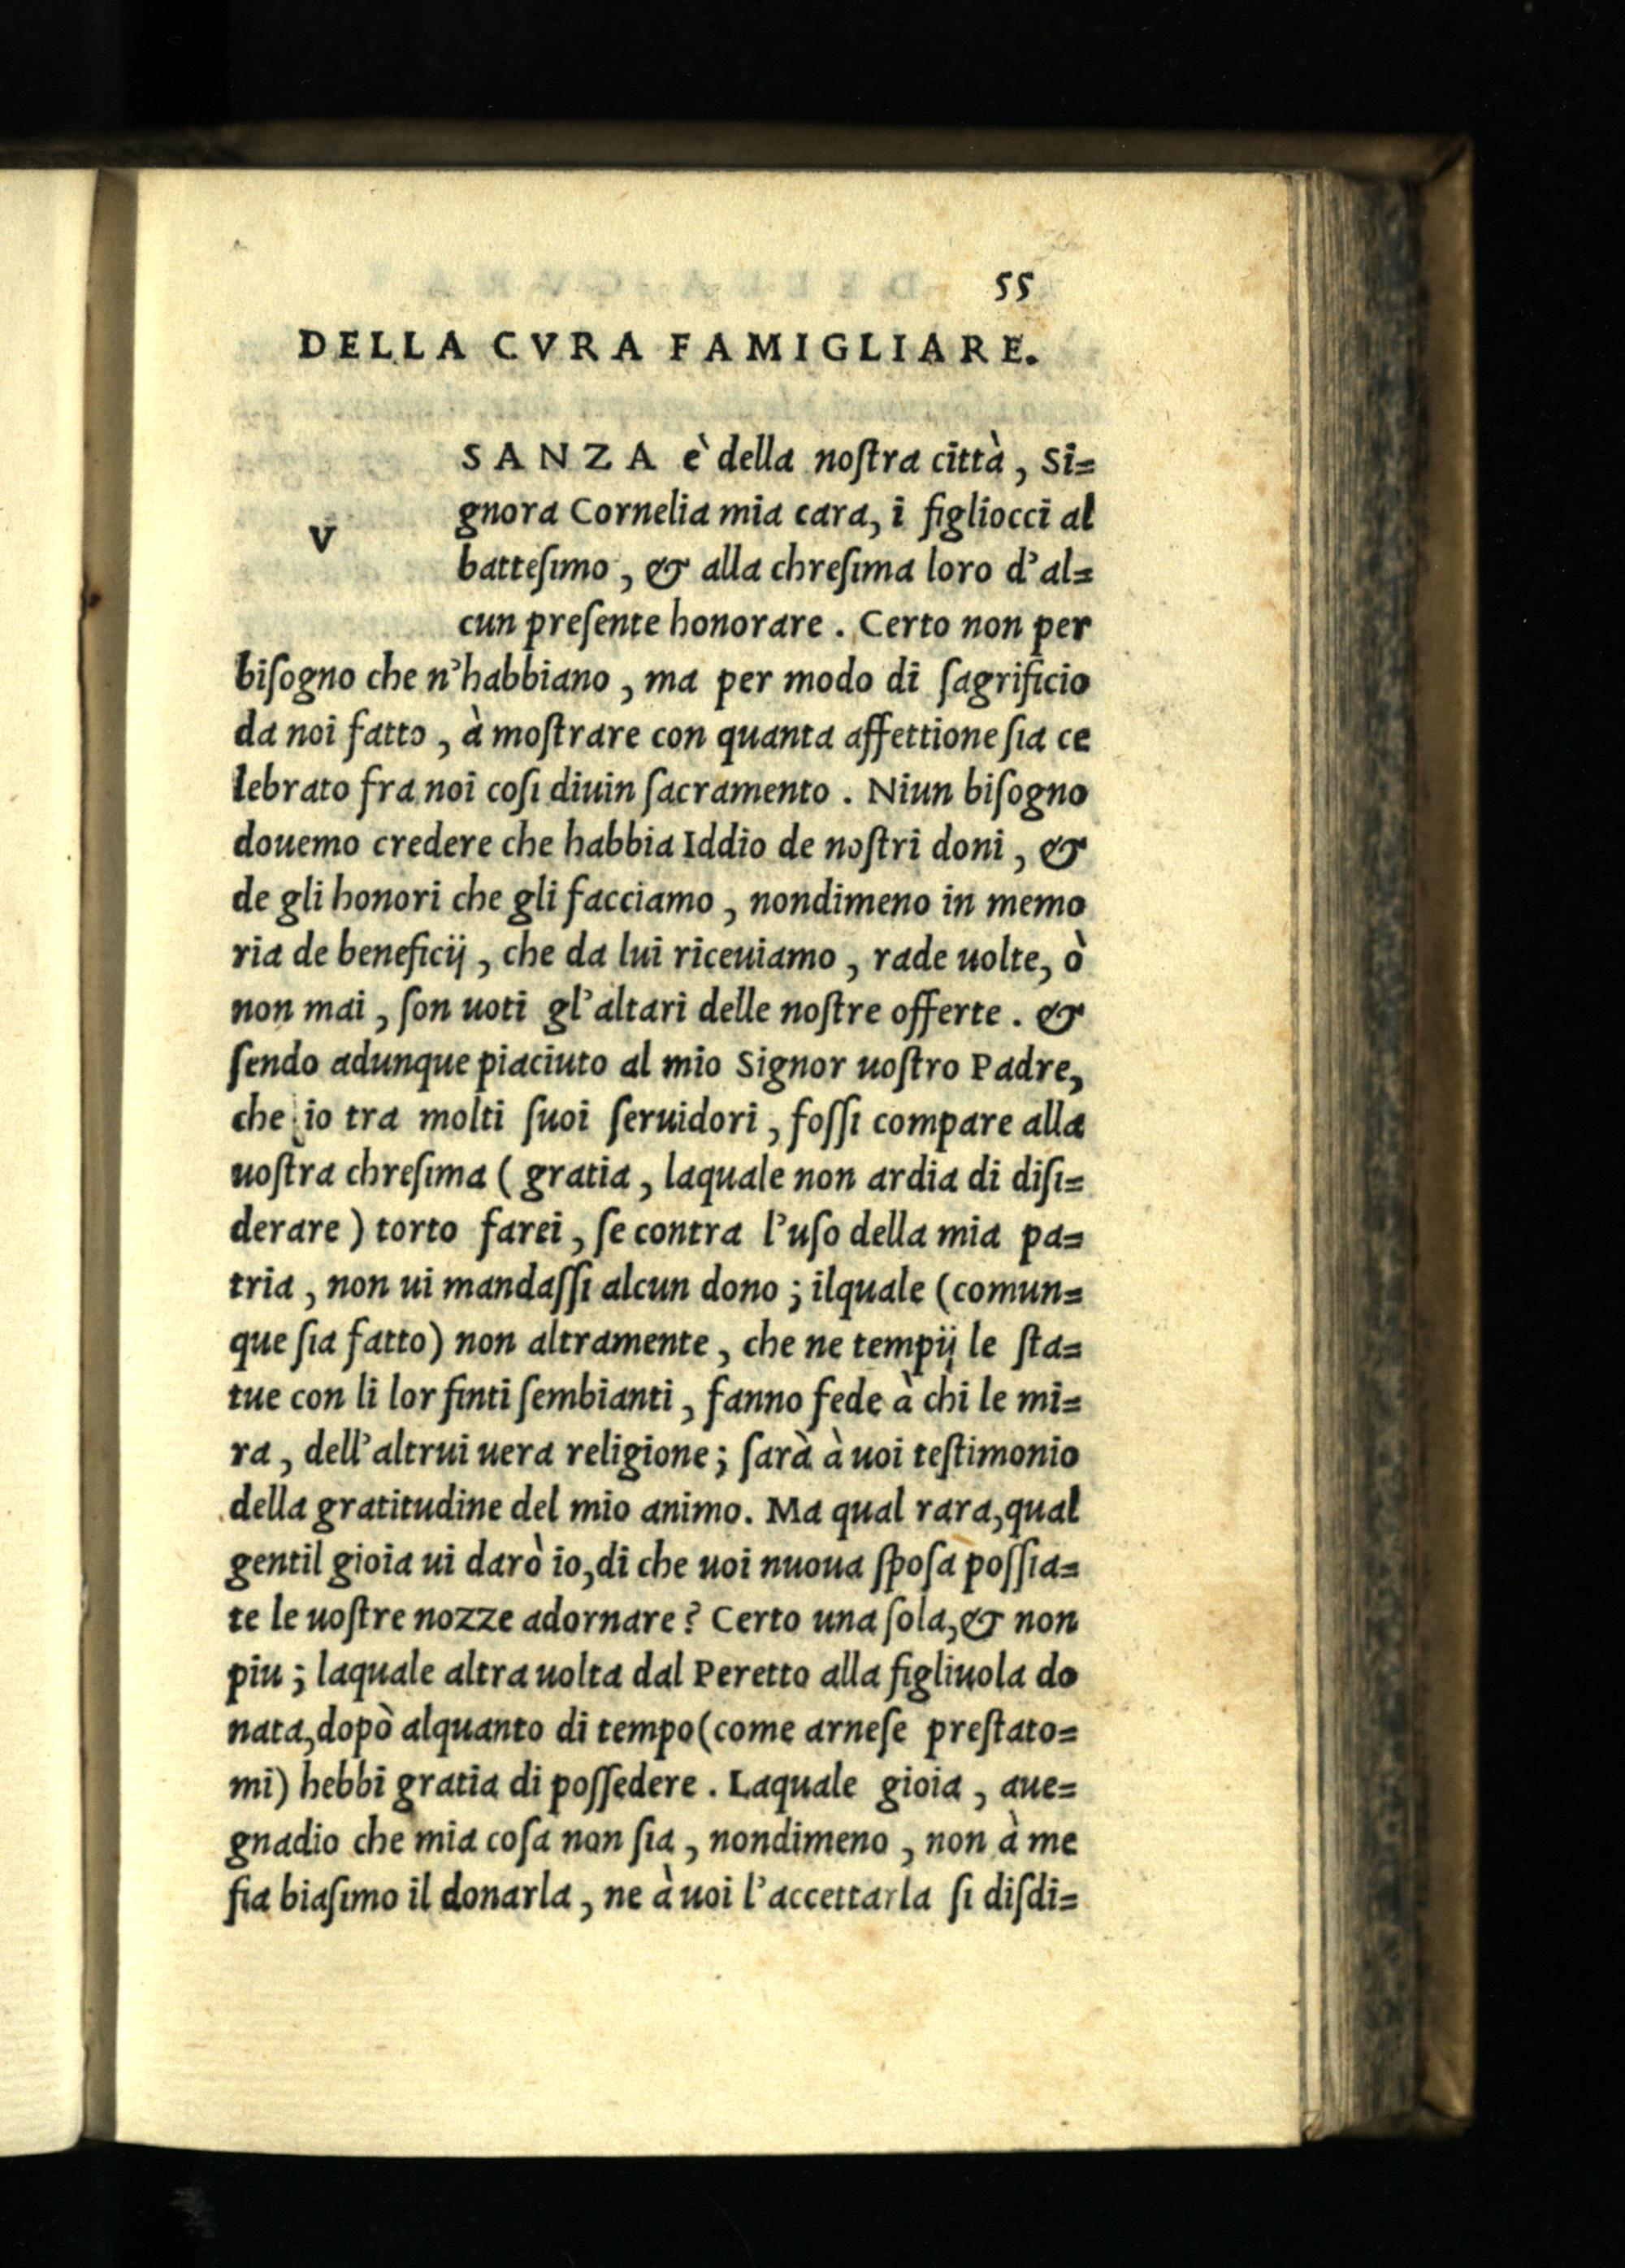 55
DELLA CVRA FAMIGLIARE.
V
SANZA è della noſtra città, Si=
gnora Cornelia mia cara, i figliocci al
batteſimo, & alla chreſima loro d'al=
cun preſente honorare. Certo non per
biſogno che n'habbiano, ma per modo di ſagrificio
da noi fatto, à moſtrare con quanta affettione ſia ce
lebrato fra noi coſi diuin ſacramento. Niun biſogno
douemo credere che habbia Iddio de noſtri doni, &
de gli honori che gli facciamo, nondimeno in memo
ria de beneficij, che da lui riceuiamo, rade uolte, ò
non mai, ſon uoti gl'altari delle noſtre offerte. &
ſendo adunque piaciuto al mio Signor uoſtro Padre,
che io tra molti ſuoi ſeruidori, foſſi compare alla
uoſtra chreſima (gratia, laquale non ardia di diſi=
derare) torto farei, ſe contra l'uſo della mia pa=
tria, non ui mandaſſi alcun dono; ilquale (comun=
que ſia fatto) non altramente, che ne tempij le ſta=
tue con li lor finti ſembianti, fanno fede à chi le mi=
ra, dell'altrui uera religione; ſarà à uoi teſtimonio
della gratitudine del mio animo. Ma qual rara, qual
gentil gioia ui darò io, di che uoi nuoua ſpoſa poſſia=
te le uoſtre nozze adornare? Certo una ſola, & non
piu; laquale altra uolta dal Peretto alla figliuola do
nata, dopò alquanto di tempo (come arneſe preſtato=
mi) hebbi gratia di poſſedere. Laquale gioia, aue=
gnadio che mia coſa non ſia, nondimeno, non à me
fia biaſimo il donarla, ne à uoi l'accettarla ſi diſdi=